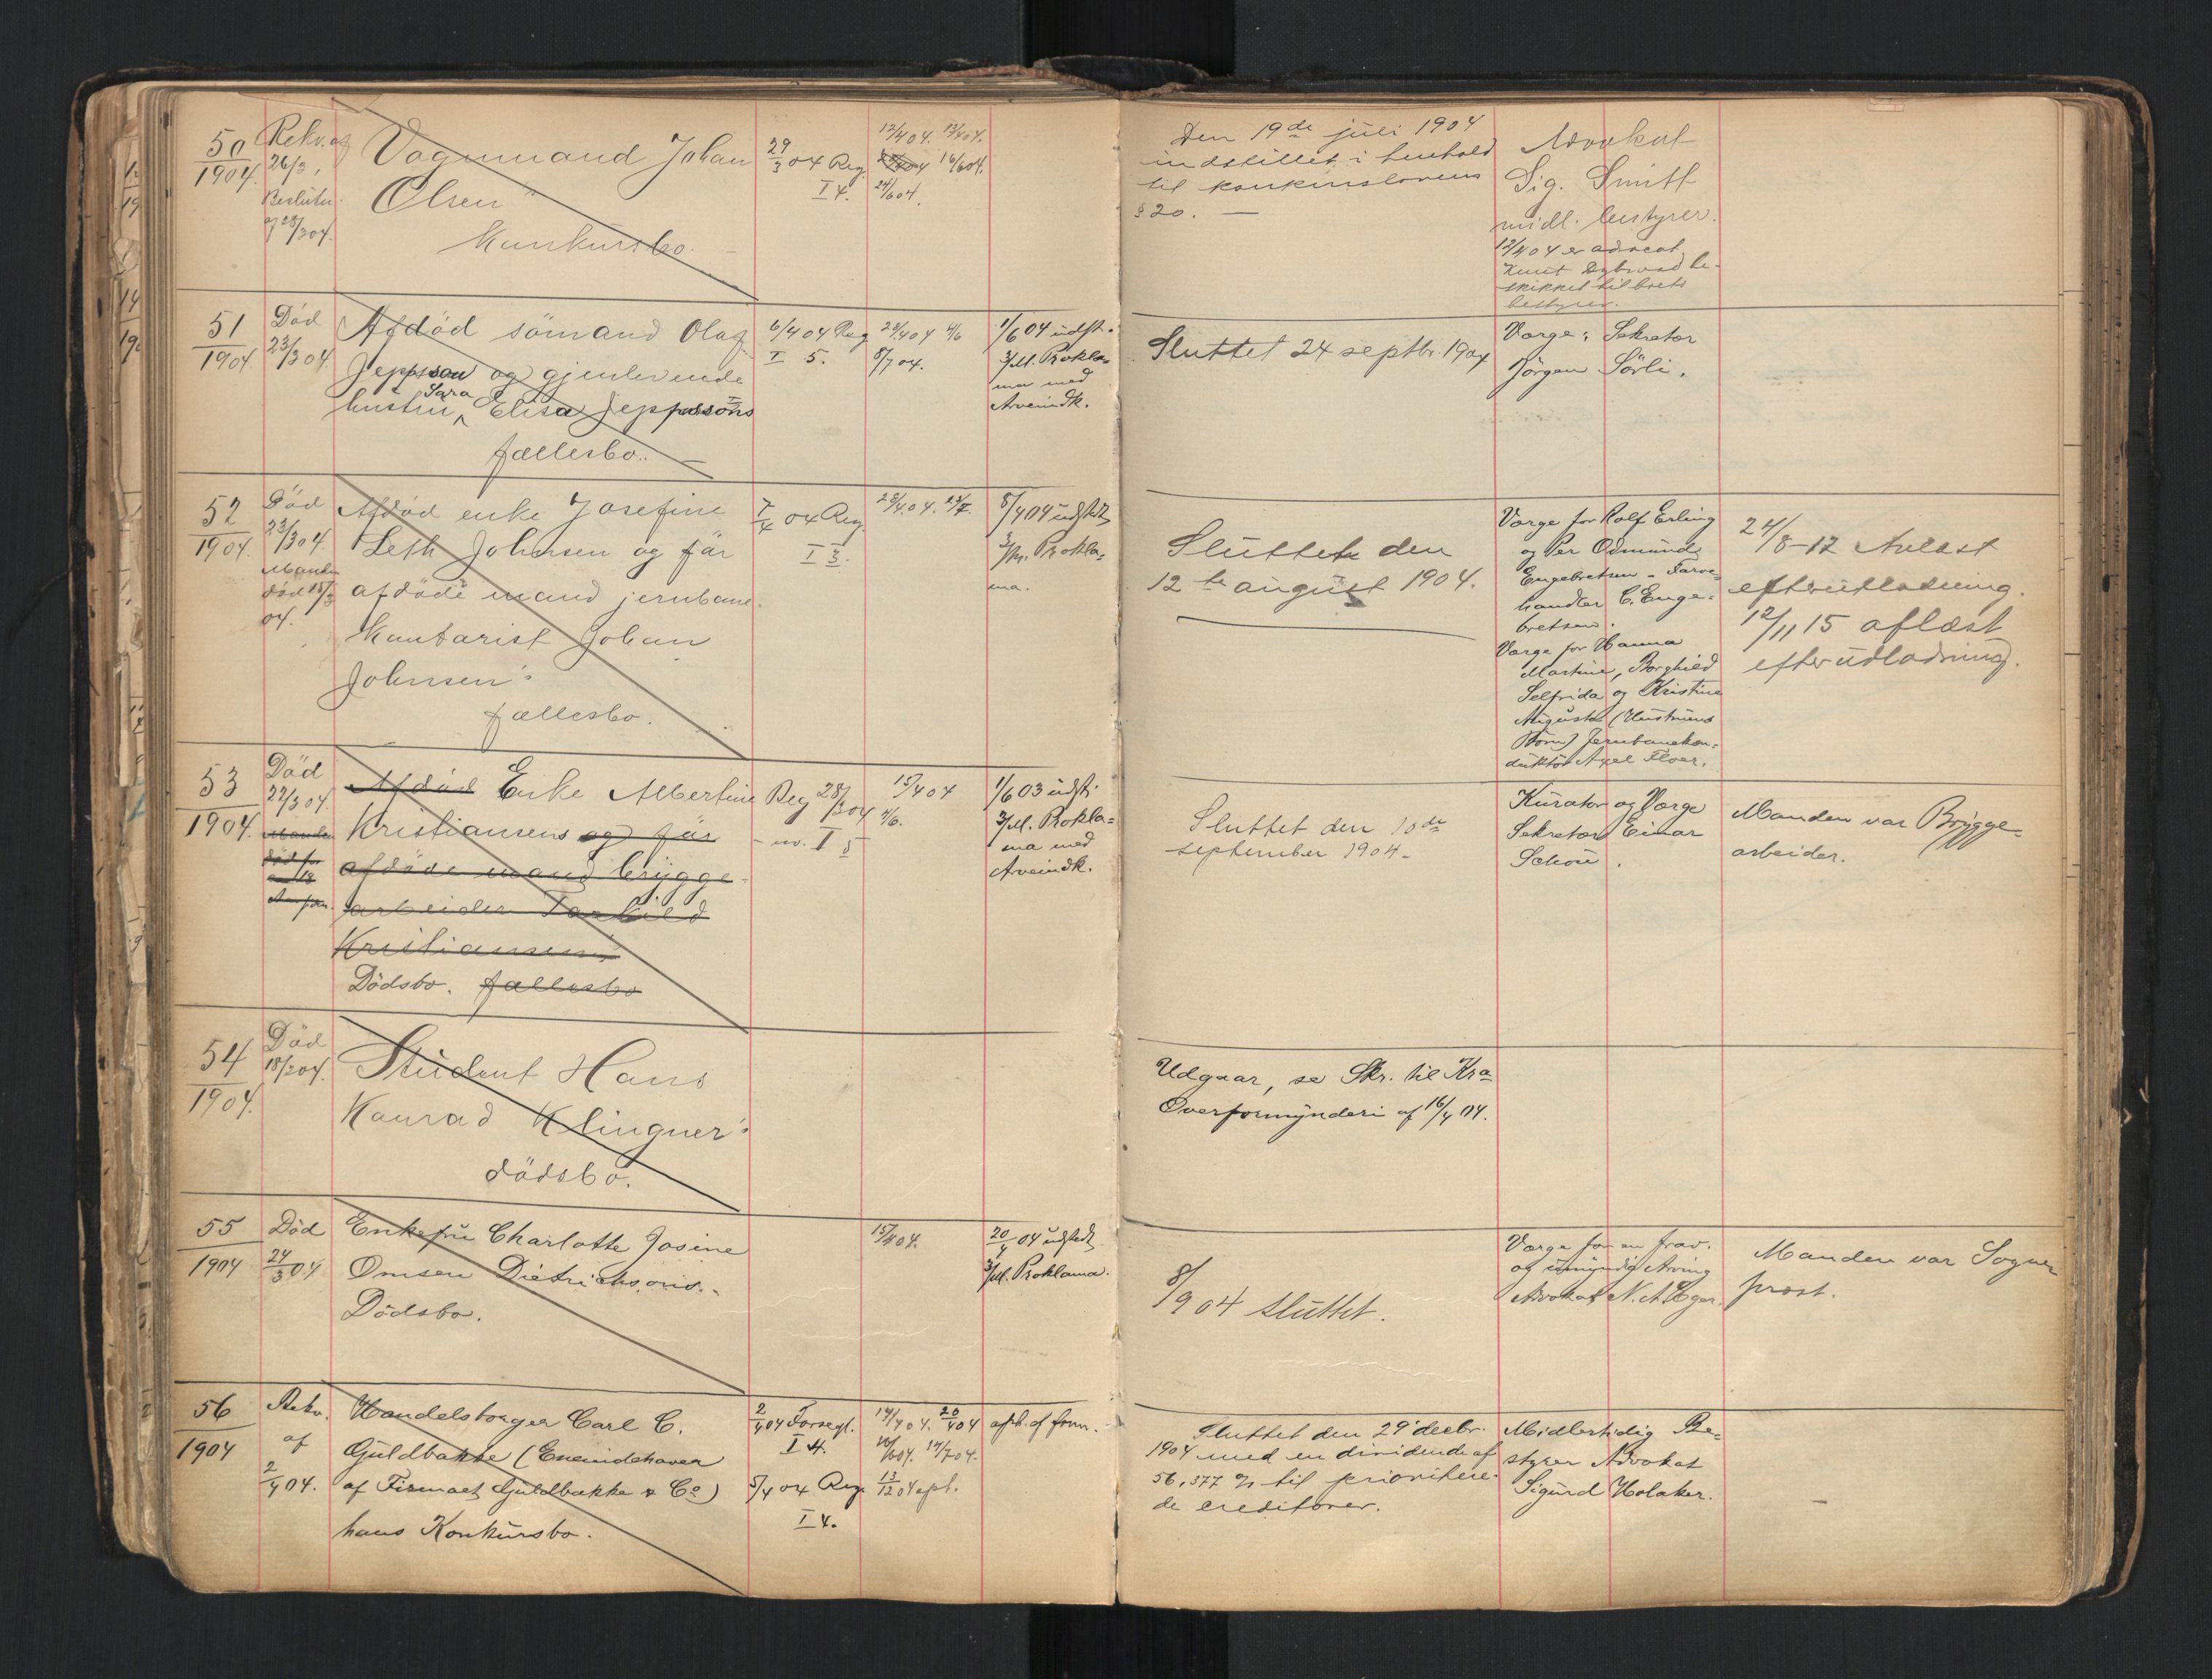 50
1904.
Rekv. af
26/3,
Beslutn.
af 28/304.
Vognmand Johan
Olsen
Konkursbo.
29/3 04 Reg.
I 4.
12/404. 13/404.
16/604.
24/604.
Den 19de juli 1904
indstillet i henhold
til konkurslovens
§ 20. —
Advokat
Sig. Smitt
midl. bestyrer.
12/404 er advocat
Knut Dybwad be-
skikket til boets
bestyrer.
51
1904.
Död
23/304.
Afdöd sömand Olaf
Jeppsson og gjenlevende
hustru Sara Elisa Jeppssons
fællesbo.
6/404 Reg
I 5.
23/404 4/6
8/704.
1/604 udst.
3/M. Prokla-
ma med
Arveindk.
Sluttet 24 septbr. 1904
Værge: Sekretær
Jörgen Sörli.
52
1904.
Död
23/304.
Manden
död 15/3
04.
Afdöd enke Josefine
Leth Johnsen og før
afdöde mand jernbane-
kontorist Johan
Johnsen's
fællesbo.
7/4 04 Reg
I 3.
23/404.
8/404 udstedt
3/M. Prokla-
ma.
Sluttet den
12te august 1904.
Værge for Rolf Erling
og Per Odmund
Engebretsen - Farve-
handler C. Enge-
bretsen.
Værge for Hanna
Martine, Borghild
Selfrida og Kristine
Augusta (Hustruens
Börn) Jernbanekon-
duktör Axel Floer.
24/8-12 Avlæst
efterutlodning.
12/11 15 aflæst
efterudlodning.
53
1904.
Död
27/304.
Manden
död for
Afdöd Enke Albertine
Kristiansens og før
afdöde mand brygge-
arbeider Torkild
Kristiansens
Dödsbo. fællesbo
Reg 28/304
nr. I 5
15/404
4/6.
1/603 udst.
3/M. Prokla-
ma med
Arveindk.
Sluttet den 10de
september 1904.
Kurator og Værge
Sekretær Einar
Schou.
Manden var Brygge-
arbeider.
54
1904.
Död
18/304.
Student Hans
Konrad Klingner's
dödsbo.
Udgaar, se Skr. til Kra
Overformynderi af 16/4 04.
55
1904
Död
24/3 04
Enkefru Charlotte Josine
Omsen Dietrichsons
Dödsbo.
15/404.
20/4 04 udstedt
3/M. Proklama.
8/9 04 sluttet.
Værge for en frav.
og umyndig Arving
Advokat N. A. Eger.
Manden var Sogne-
prest.
56
1904
Rekv.
af
2/4 04.
Handelsborger Carl C.
Guldbakke (Eneindehaver
af Firmaet Guldbakke & Co)
hans Konkursbo.
2/404 Forsegl.
I 4.
5/4 04 Reg
I 4.
14/404. 20/404
14/704.
13/12 04
oph. af form.
Sluttet den 29 decbr.
1904 med en dividende af
56,377 % til prioritere-
de creditorer.
Midlertidig Be-
styrer Advokat
Sigurd Holaker.